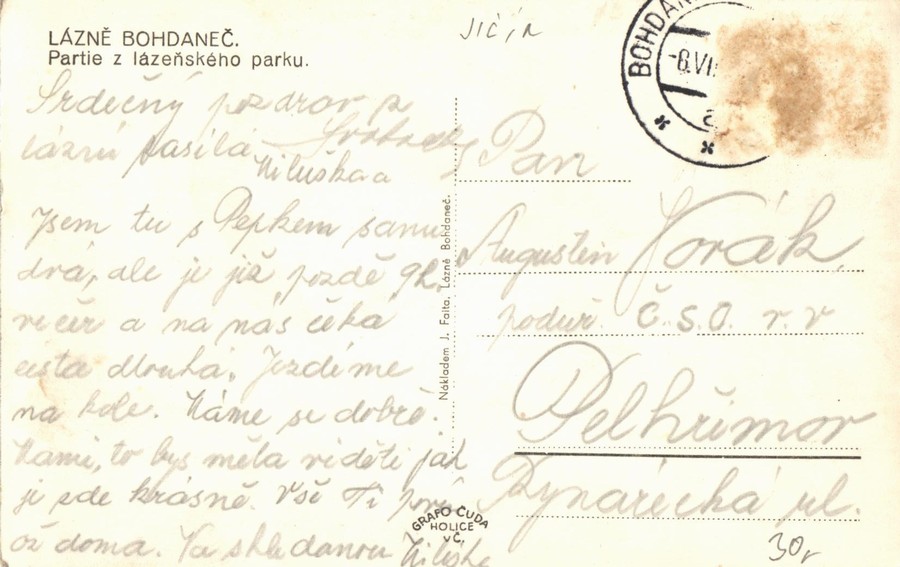 LÁZNĚ BOHDANEČ.
Partie z lázeňského parku.
Jičín
BOHDANEČ
-6.VI
a
Srdečný pozdrav z
lázní zasílá
Miluška a
Jsem tu s Pepkem samo
drá, ale je již pozdě 9h.
večer a na nás čeká
cesta dlouhá. Jezdíme
na kole. Máme se dobře.
Mami, to bys měla viděti jak
je zde krásně. Vše Ti poví
až doma. Na shledanou Miluška
Nákladem J. Faita, Lázně Bohdaneč.
GRAFO ČUDA
HOLICE
v Č.
Pan
Augustin Vorák,
Č.S.O. v. v
Pelhřimov
Rynárecká ul.
30,-